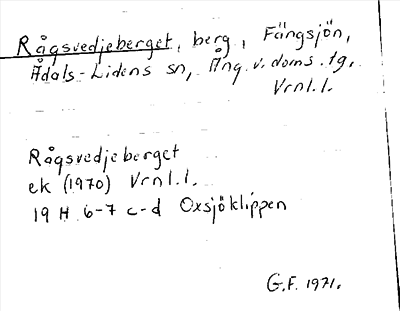 Rågsvedjeberget, berg, Fängsjön,
Ådals-Lidens sn, Ång. v. doms. tg.
Vrnl.l.
Rågsvedjeberget
ek (1970) Vrnl.l.
19 H 6-7 c-d Oxsjöklippen
G.F. 1971.